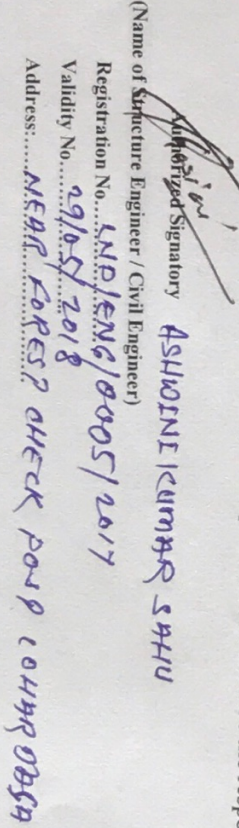 Authorized Signatory ASHWINI KUMAR SAHU
(Name of Structure Engineer / Civil Engineer)
Registration No....LNP/ENG/0005/2017
Validity No....29/05/2018
Address:....NEAR FOREST CHECK LOHARDAGA